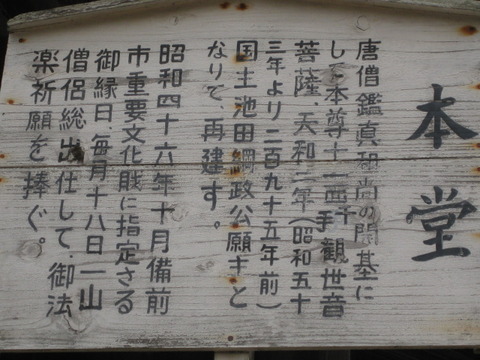 本堂
唐僧鑑真和尚の開基に
して本尊十一面千手観世音
菩薩、天和二年（昭和五十
三年より二百九十五年前）
国主池田綱政公願主と
なりて、再建す。
昭和四十六年十月備前
市重要文化財に指定さる
御縁日 毎月十八日一山
僧侶総出仕して、御法
楽祈願を捧ぐ。